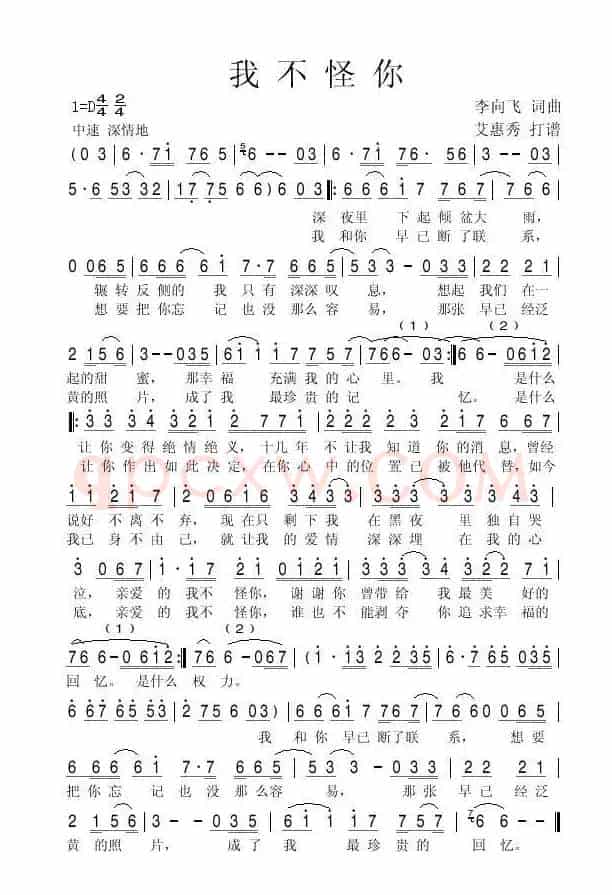 我不怪你
1=D 4/4 2/4
李向飞 词曲
中速 深情地
艾惠秀 打谱
(0 3 | 6 · 7 1 7 6 5 | 6 - - 0 3 | 6 · 7 1 7 6 5 | 6 - - 0 3 |
5 · 6 5 3 3 2 | 1 7 · 7 5 6 6) 6 0 3 |: 6 6 6 1 7 7 6 7 | 7 · 6 6 5 3 |
深夜里 下起倾盆大 雨,
我和你 早已断了联 系,
0 0 6 5 | 6 6 6 6 1 | 7 · 7 6 6 5 | 5 3 3 - 0 3 3 | 2 2 2 1 |
辗转反侧的 我 只有深深叹 息, 想起我们在一
想要把你忘 记也没那么容 易, 那张早已经泛
(1) (2)
2 1 5 6 | 3 - - 0 3 5 | 6 1 1 1 7 7 5 7 | 7 6 6 - 0 3 :| 6 6 - 0 6 1 2 |
起的甜 蜜, 那幸福 充满我的心 里。我 是什么
黄的照 片, 成了我 最珍贵的记 忆。是什么
|: 3 3 3 4 3 2 1 2 7 7 1 | 2 2 2 2 3 2 1 7 5 6 6 7 |
让你变得绝情绝义, 十几年 不让我知道你的消息,曾经
让你作出如此决定, 在你心中的位置已被他代替,如今
1 1 2 1 7 | 2 0 6 1 6 3 4 3 3 | 3 3 3 3 2 6 6 3 4 3 |
说好 不离不 弃, 现在只 剩下我 在黑夜 里独自哭
我已 身不由 己, 就让我 的爱情 深深埋 在我的心
泣, 亲爱的 我不 怪你, 谢谢你 曾带给 我最美 好的
底, 亲爱的 我不 怪你, 谁也不 能剥夺 你追求幸福的
(1) (2)
7 6 6 - 0 6 1 2 :| 7 6 6 - 0 6 7 | (1 · 1 3 2 2 3 5 | 6 · 7 6 5 0 3 5 |
回忆。是什么 权力。
6 6 7 6 5 5 3 | 2 7 5 6 0 3) | 6 6 6 1 7 7 6 7 | 7 6 6 0 0 6 5 |
我 和你 早已断了联 系, 想要
6 6 6 6 1 | 7 · 7 6 6 5 | 5 3 3 - 0 3 3 | 2 2 2 1 |
把你忘 记 也没那么容 易, 那张早已经泛
2 1 5 6 | 3 - - 0 3 5 | 6 1 1 1 7 7 5 7 | 6 6 - - ‖
黄的照 片, 成了我 最珍贵的 回忆。